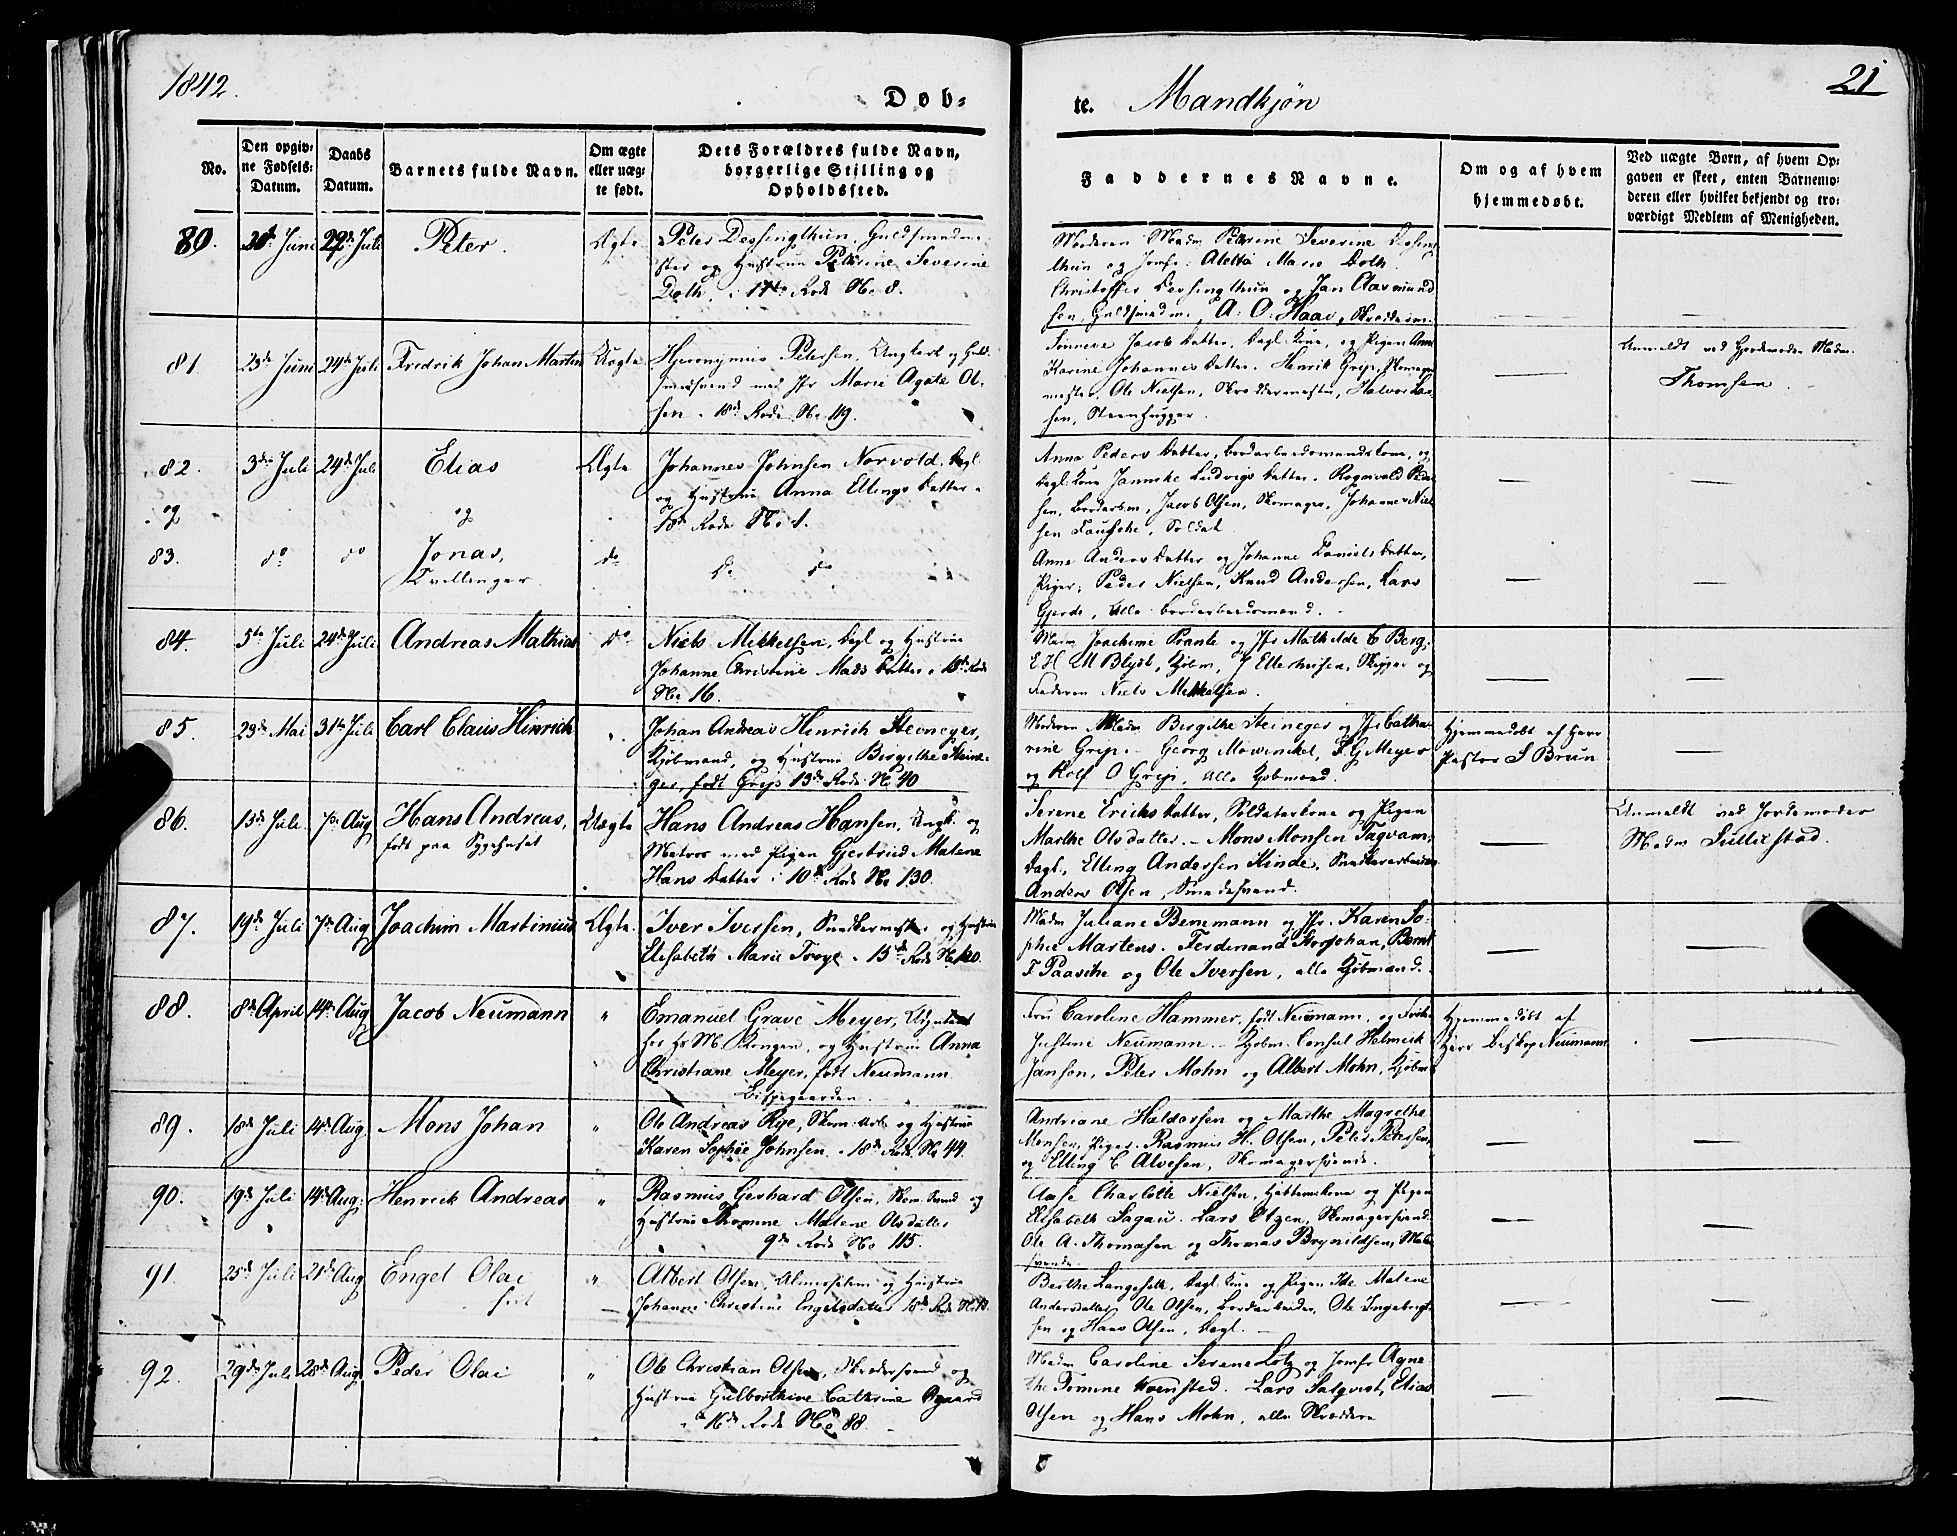 1842.
Døb-
te.
Mandkjøn
21
No.
Den opgiv-
ne Fødsels-
Datum.
Daabs
Datum.
Barnets fulde Navn.
Om ægte
eller uæg-
te født.
Dets Forældres fulde Navn,
borgerlige Stilling og
Opholdssted.
Faddernes Navne.
Om og af hvem
hjemmedøbt.
Ved uægte Børn, af hvem Op-
gaven er skeet, enten Barnemo-
deren eller hvilket bekjendt og tro-
værdigt Medlem af Menigheden.
80. Juni Juli Peter. Ægte Peter Dessingthun, Guldsmedme-
ster og Hustrue Petrine Severine
Doth, i 17de Rode No 8.
Moderen Madm Petrine Severine Dessing
thun og Jomfr. Aletta Marie Doth.
Christoffer Dessingthun og Jan Aasmund
sen, Guldsmedm, A. O. Haav, Skrædderm.
81. 23de Juni 24de Juli Fredrik Johan Martin Uægte Hieronymus Petersen, Ungkarl og Guld-
smedsvend med Jfr Marie Agate Ol-
sen. 18de Rode No 119.
Jacobsdatter, Dagl. Kone, og Pigen Anne
Karine Johannesdatter. Henrik Grip, Skomager
mester, Ole Nielsen, Skræddermester, Halvor Lar-
sen, Steenhugger.
Anmeldt ved Gjordemoder Madm.
Thomsen.
82. 3de Juli 24de Juli Elias Ægte Johannes Johnsen Norvold, Dagl.
og Hustrue Anna Ellingsdatter.
18de Rode No 1.
Anna Pedersdatter, Bordarbeidsmandskone, og
Dagl. Kone Jannike Ludvigsdatter. Rognvald Peder
sen, Bordarbm, Jacob Olsen, Skomager, Johannes Niel
sen Fauske, Soldat.
og
og
83. do do Jonas, do do do
Tvillinger.
Anne Andersdatter og Johanne Danielsdatter,
Piger, Peder Nielsen, Knud Andersen, Lars
Gjerde, alle Bordarbeidsmænd.
84. 5te Juli 24de Juli Andreas Mathias do Niels Mikkelsen, Dagl og Hustrue
Johanne Christine Madsdatter. 18de Rode
No 16.
Madm Joachime Prante og Jfr Mathilde C Berg.
E H M Blyst, Kjøbm, J Ellerhusen, Skipper og
Faderen Niels Mikkelsen.
85. 29de Mai 31te Juli Carl Claus Hinrich " Johan Andreas Hinrich Steineger,
Kjøbmand, og Hustrue Birgithe Steine-
ger, født Grip 13de Rode No 40
Moderen Madm Birgithe Steineger og Jfr Catha-
rine Grip. Georg Mowinckel, F G Meyer
og Rolf O Grip, alle Kjøbmænd.
Hjemmedøbt af Herr
Pastor S Brun
86. 13de Juli 7de Aug Hans Andreas, Uægte Hans Andreas Hansen, Ungk. og
født paa Sygehuset
Matros med Pigen Gjertrud Malene
Hansdatter i 10de Rode No 130.
Serene Ericksdatter, Soldaterkone og Pigen
Marthe Olsdatter. Mons Monsen Tagvam,
Dagl., Elling Andersen Kinde, Snedkerarbeider
Anders Olsen, Smedesvend.
Anmeldt ved Jordemoder
Madm Sullestad.
87. 19de Juli 7de Aug Joachim Martinius Ægte. Iver Iversen, Snedkermester og Hustrue
Elisabeth Marie Troye. 15de Rode No 120.
Madm Juliane Benemann og Jfr. Karen So-
phie Martens. Ferdinand Storjohan, Bernt
F Paasche og Ole Iversen, alle Kjøbmænd.
88. 8de April 14de Aug Jacob Neumann " Emanuel Grave Meyer, Adjutant
hos Hs M. Kongen, og Hustrue Anna
Christiane Meyer, født Neumann.
Bispegaarden.
Fru Caroline Hammer, født Neumann, og Frøken
Justine Neumann. Kjøbm. Consul Helmich
Janson, Peter Mohn og Albert Mohn, Kjøbm
Hjemmedøbt af
Herr Biskop Neumann
89. 18de Juli 14de Aug. Mons Johan " Ole Andreas Rye, Skom. Arb. og Hustrue
Karen Sophie Johnsen. 18de Rode No 44.
Andriane Haldorsen og Marthe Magrethe
Monsen, Piger. Rasmus H. Olsen, Peter Petersen
og Elling C Alvesen, Skomagersvende.
90. 19de Juli 14de Aug. Henrik Andreas " Rasmus Gerhard Olsen, Skom. Svend og
Hustrue Thomine Malene Olsdatter
9de Rode No 115.
Aase Charlotte Nielsen, og Pigen
Elisabeth Sagau. Lars Olzen, Skomagersvend
Ole A. Thomasen og Thomas Brynildsen, Maler
svende.
91. 25de Juli 21de Aug Engel Olai " Albert Olsen, og Hustrue
Johanne Christine Engelsdatter 18de Rode
Berthe Langesæth, Dagl. Kone og Pigen Ide Malene
Andersdatter, Ole Olsen, Bordarbeider, Ole Ingebrigt
sen og Hans Olsen, Dagl.
92. 29de Juli 28de Aug Peder Olai " Ole Christian Olsen, Skrædersvend og
Hustrue Gulborthine Cathrine Øgaard
16de Rode No 88.
Madm Caroline Serene Lotz og Jomfr Agne-
the Tomine Wernsted. Lars Salqvist, Elias
Olsen og Hans Mohn, alle Skræddere